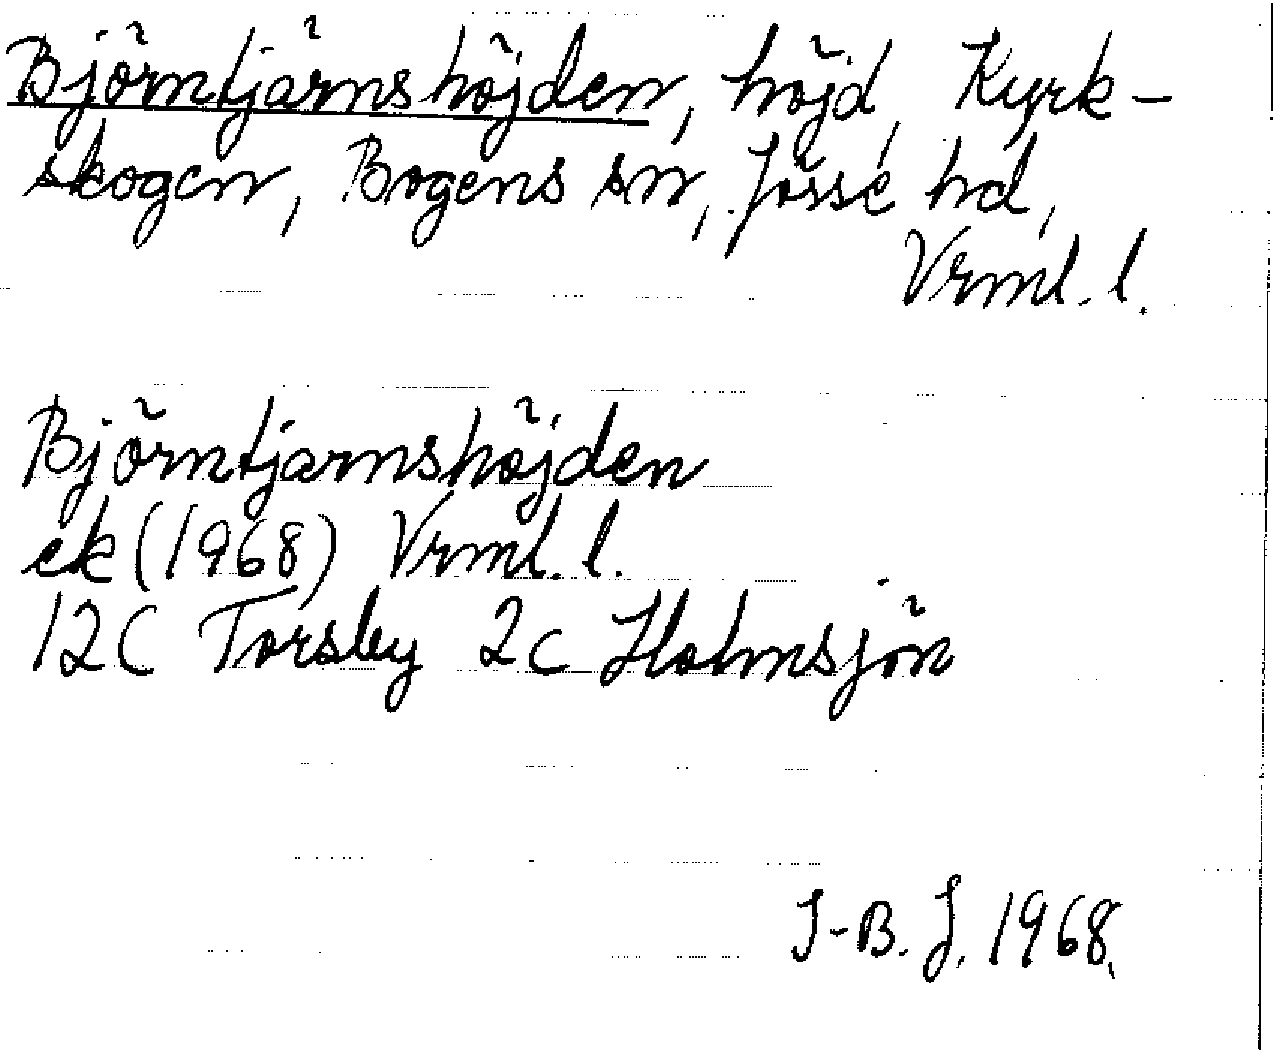 Björntjärnshöjden, höjd, Kyrk-
skogen, Bogens sn, Jösse hd,
Vrml. l.
Björntjärnshöjden
ek (1968) Vrml. l.
12C Torsby 2c Holmsjön
I-B. J. 1968.